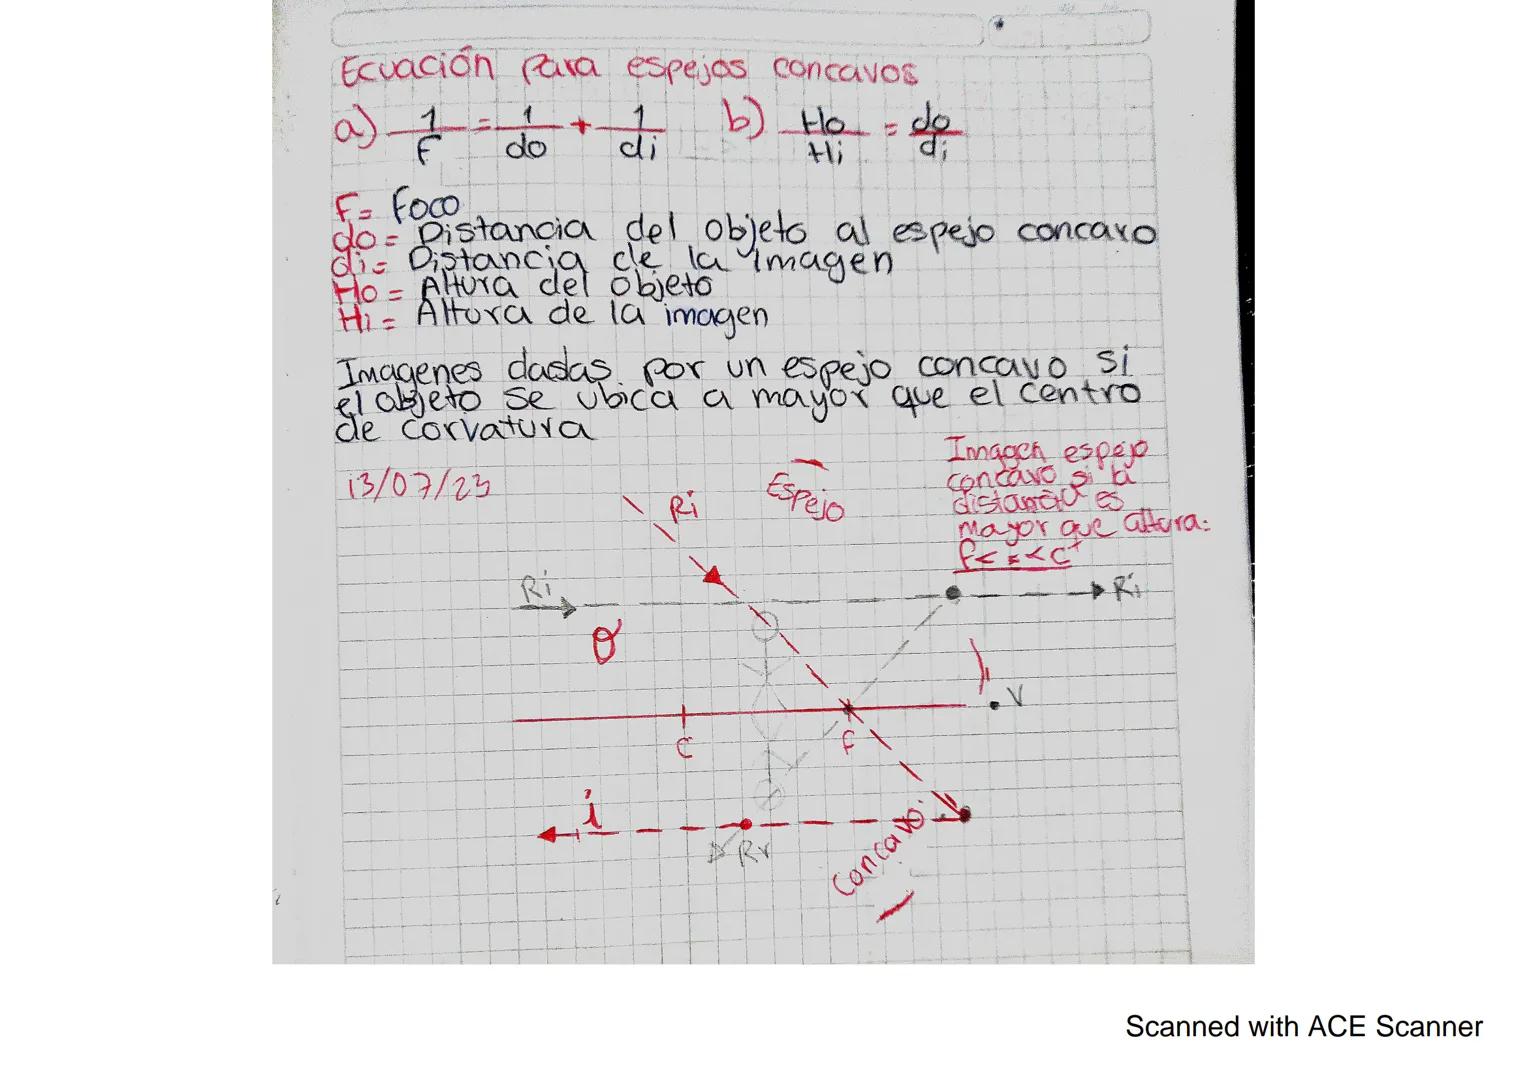 Ecuación para espejos concavos
a) 1/F = 1/do + 1/di   b) Ho/Hi = do/di
F= Foco
do= Distancia del objeto al espejo concavo
di= Distancia de la imagen
Ho= Altura del objeto
Hi= Altura de la imagen
Imagenes dadas por un espejo concavo si
el objeto se ubica a mayor que el centro
de corvatura
13/07/23
Imagen espejo
concavo si la
distancia es
mayor que altura:
Ri
Espejo
Ri
Ri
O
V
C
F
i
Rr
Concavo
Scanned with ACE Scanner